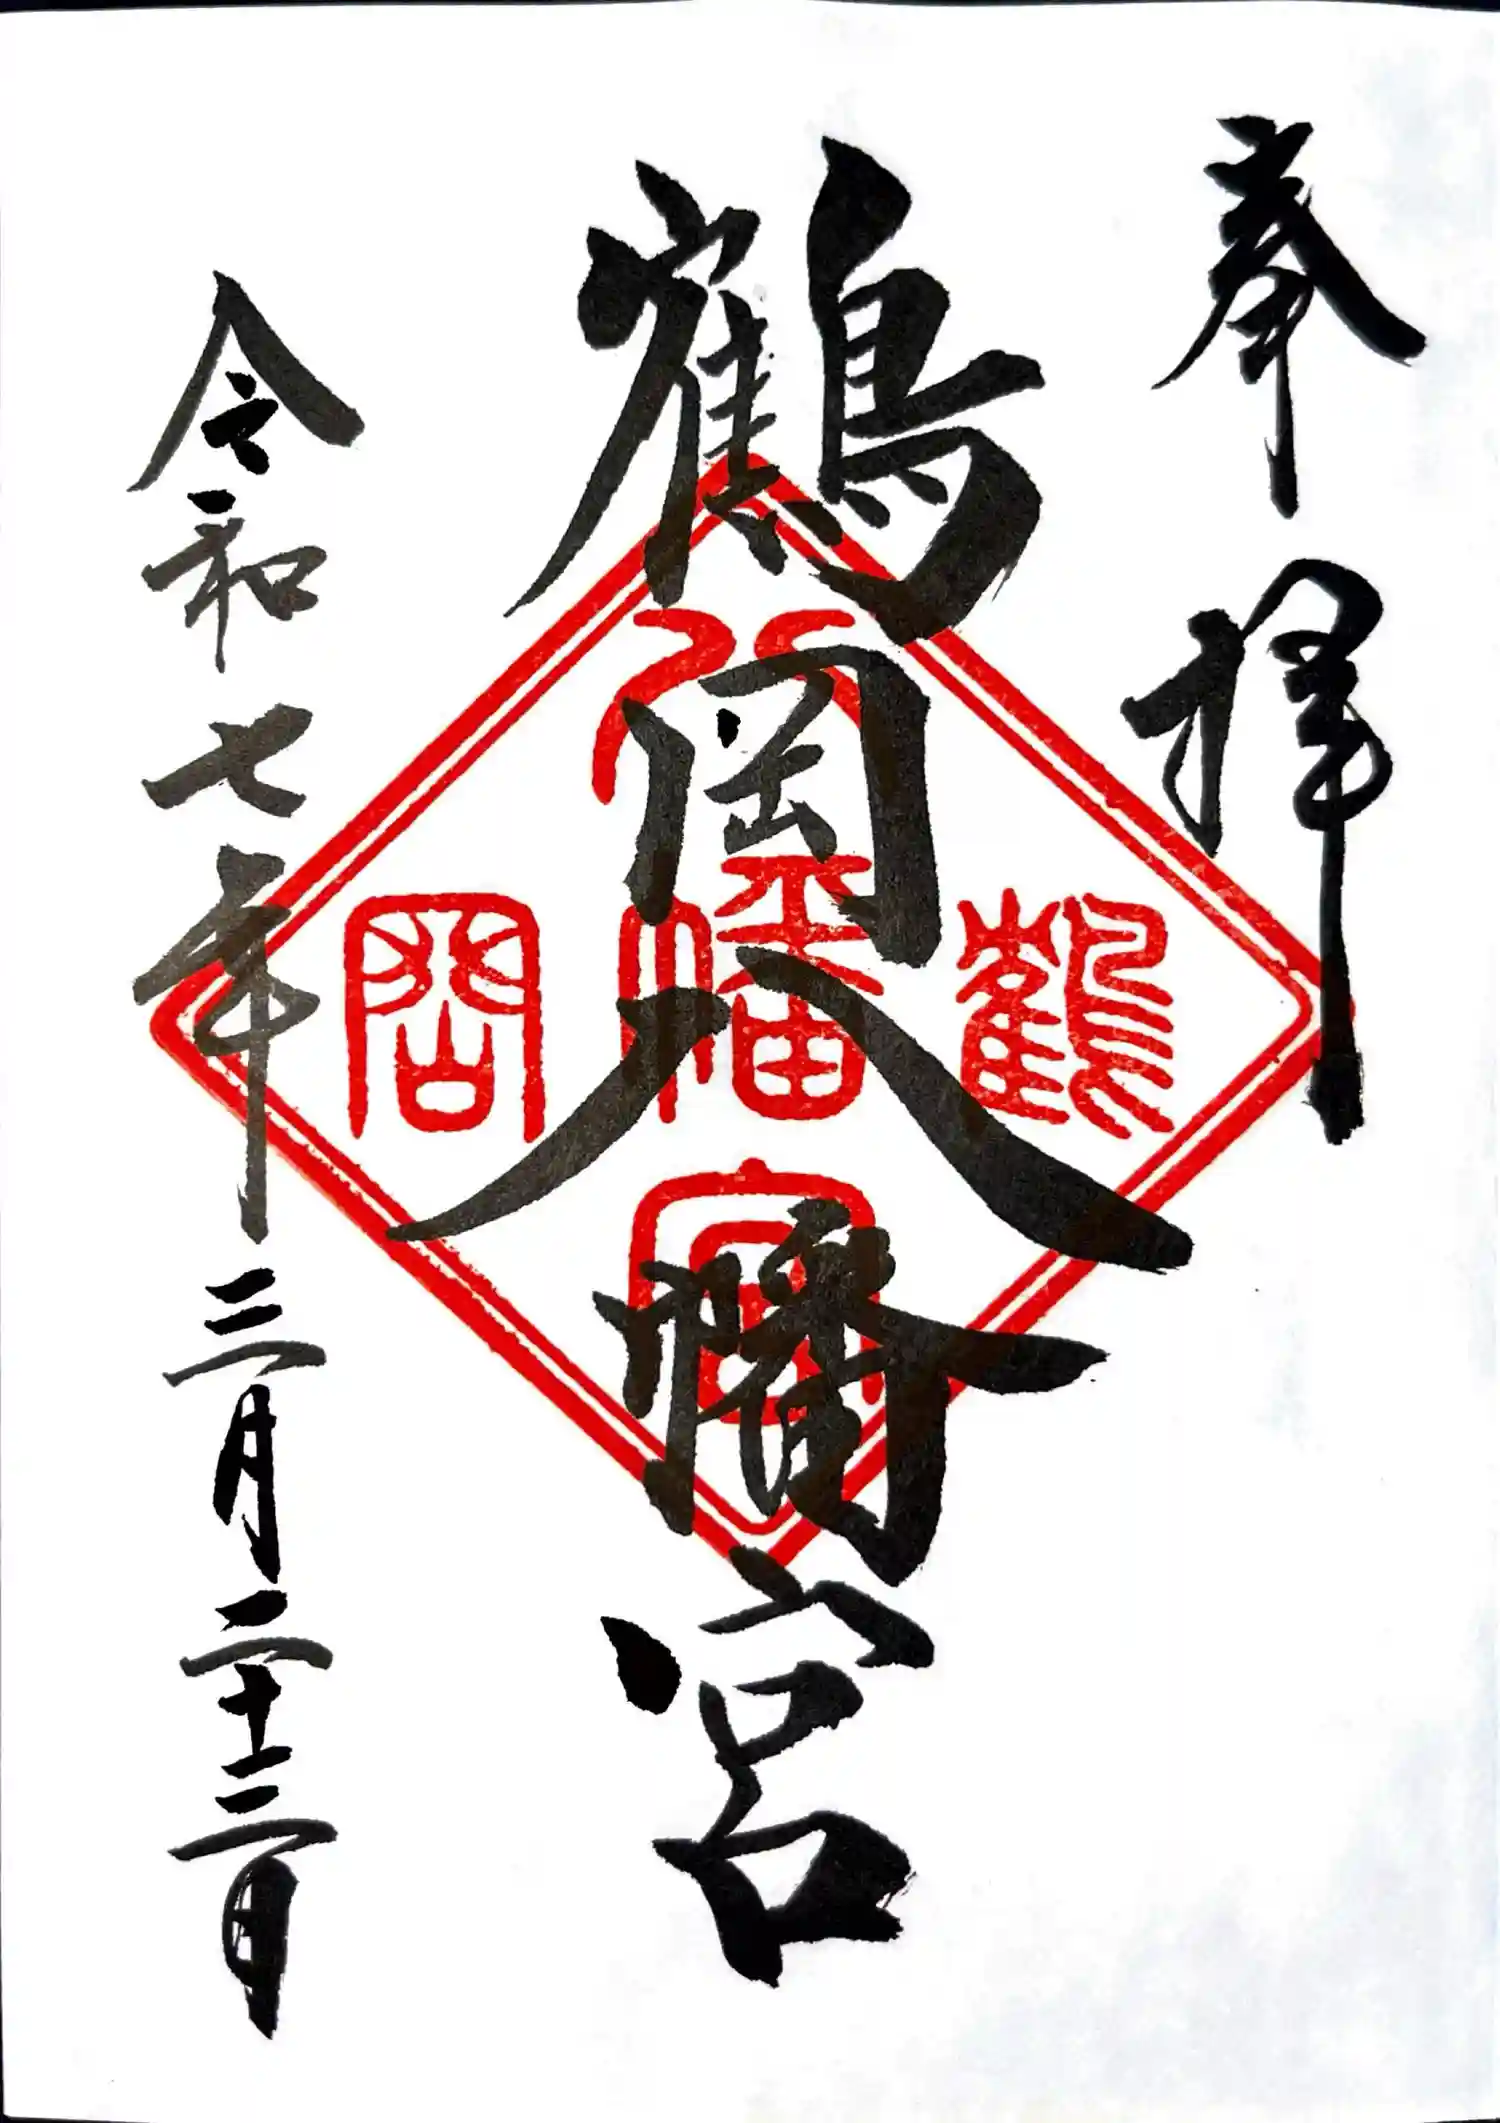 奉拝
鶴岡八幡宮
令和七年三月二十三日
鶴岡八幡宮